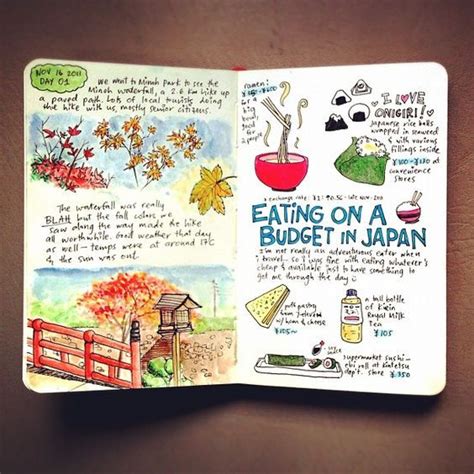 NOV 16 2011
DAY 01
We went to Minoh Park to see the
Minoh waterfall, a 2.8 km hike up
a paved path. Lots of local tourists doing
the hike with us, mostly senior citizens.
The waterfall was really
BLAH but the fall colors we
saw along the way made the hike
all worthwhile. Great weather that day
as well - temps were at around 17°C
& the sun was out.
ramen:
for a
big
bowl,
good
for
2 people
I LOVE
ONIGIRI!
Japanese rice balls
wrapped in seaweed
& with various
fillings inside
¥100-¥170 at
convenience
stores
exchange rate:
EATING ON A
BUDGET IN JAPAN
I'm not really an adventurous eater when
I travel - so I was fine with eating whatever's
cheap & available just to have something to
get me through the day
puff pastry
from 7-eleven
w/ ham & cheese
¥105~
a tall bottle
of Kirin
Royal Milk
Tea
¥105
soy sauce
supermarket sushi-
ebi roll at Kintetsu
dep't. store ¥350